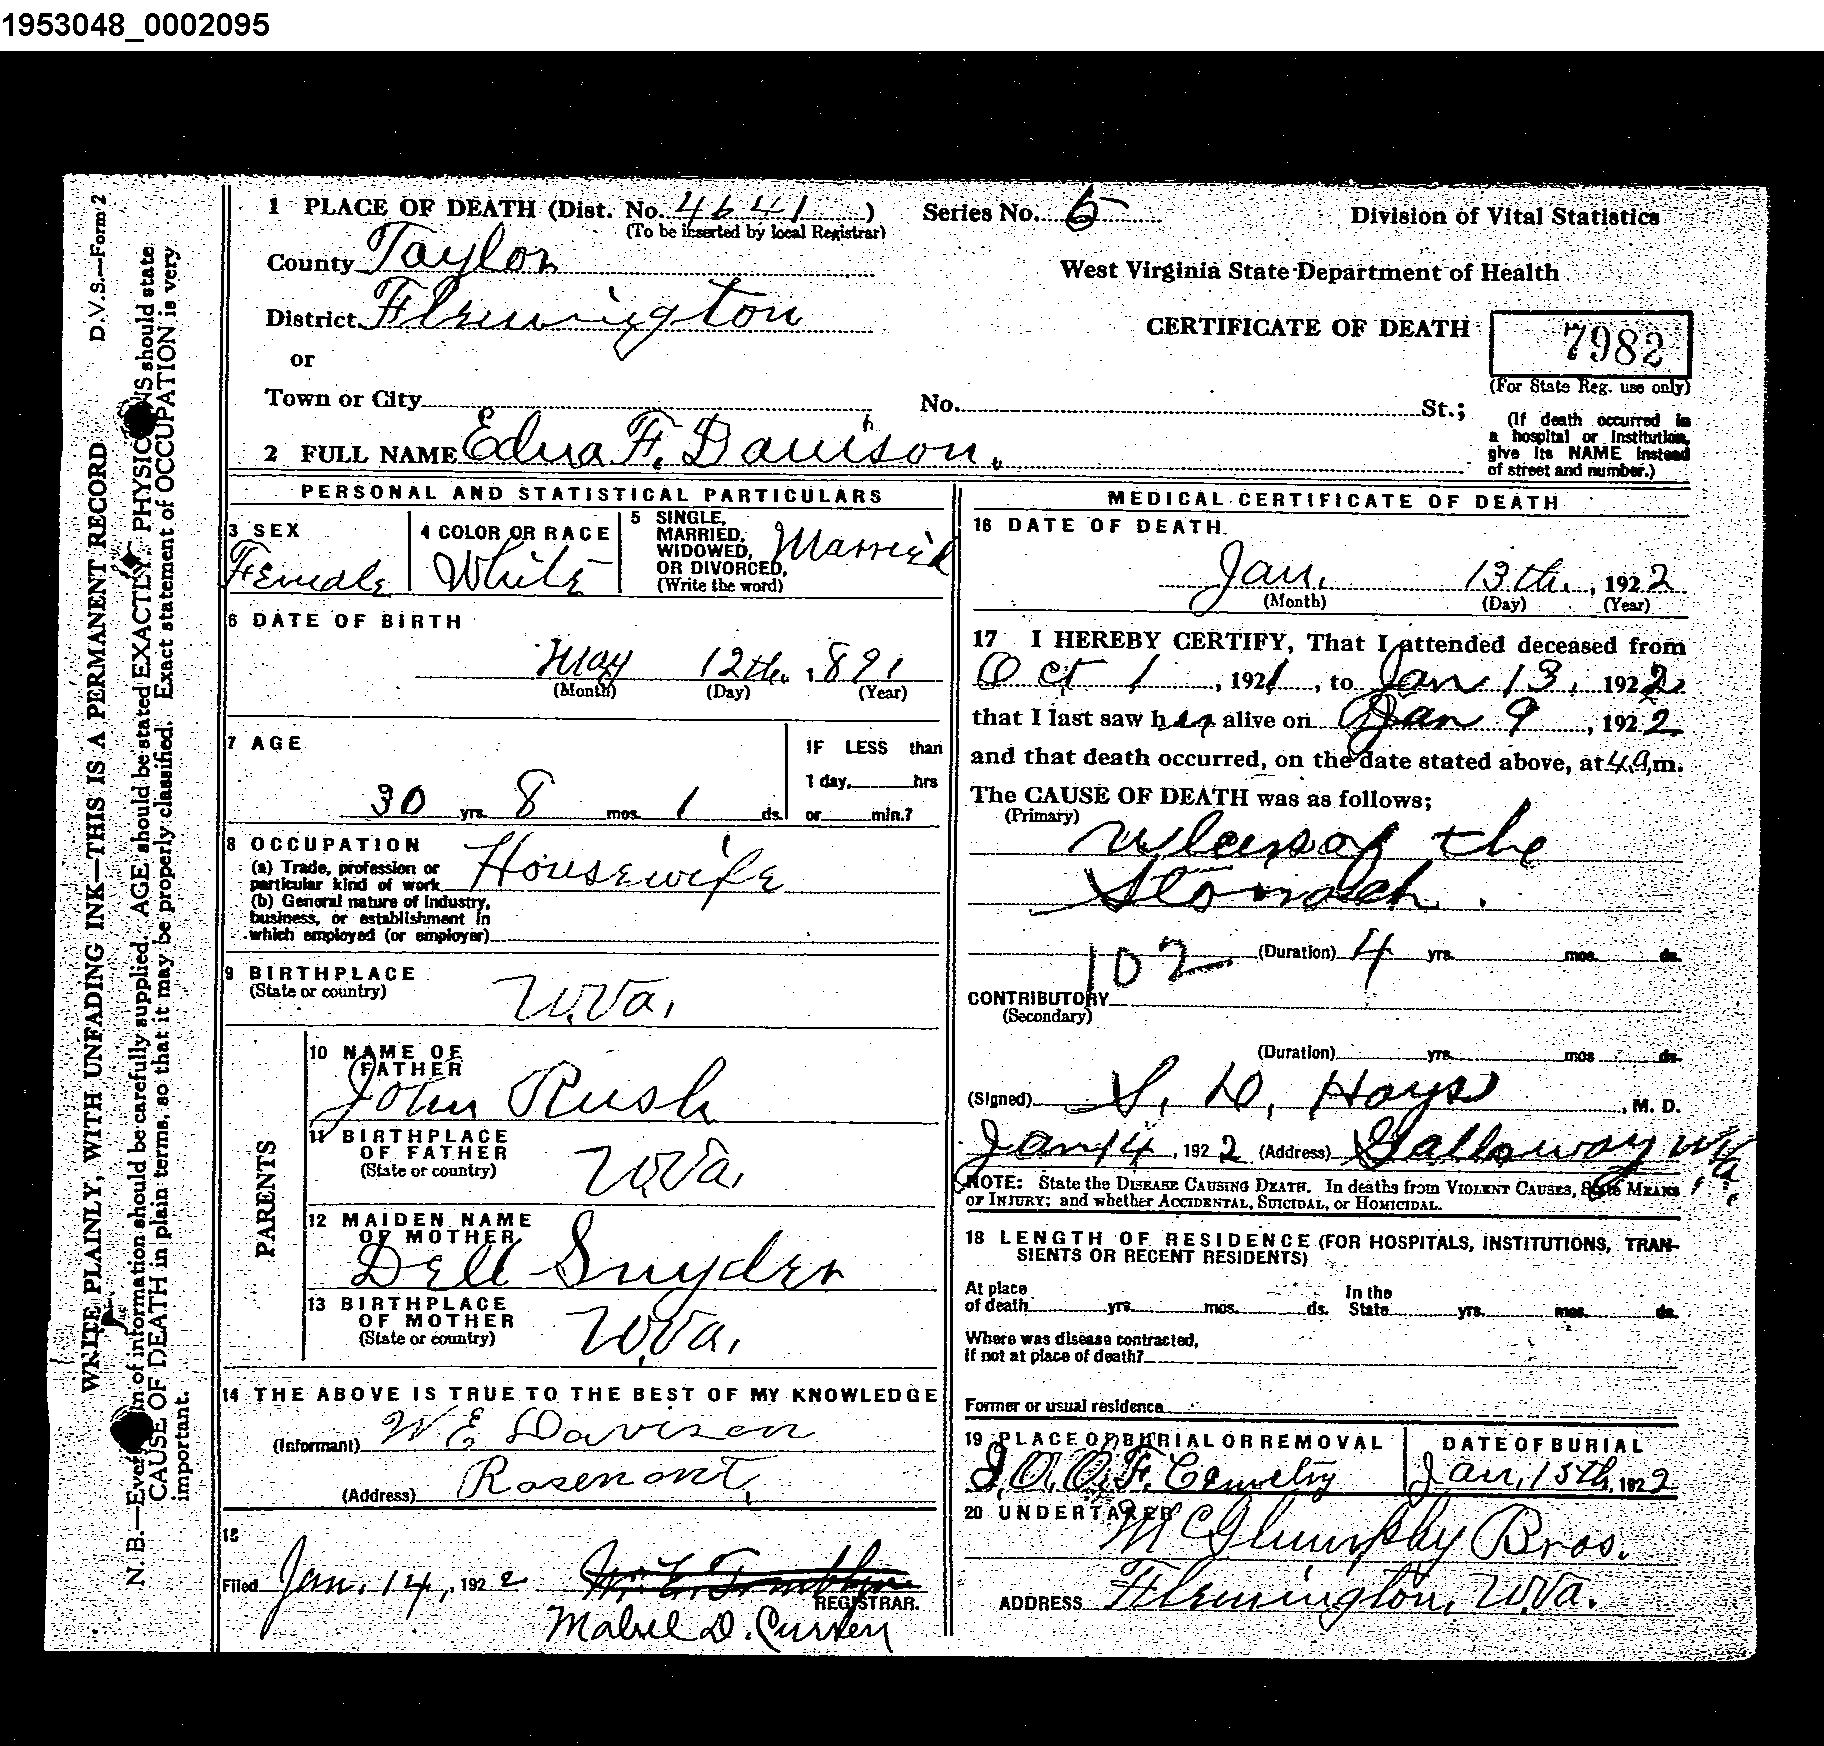 1953048_0002095
D.V.S.—Form 2
WRITE PLAINLY, WITH UNFADING INK—THIS IS A PERMANENT RECORD
N. B.—Every of information should be carefully supplied. AGE should be stated EXACTLY. PHYSICIANS should state
CAUSE OF DEATH in plain terms, so that it may be properly classified. Exact statement of OCCUPATION is very
important.
1 PLACE OF DEATH (Dist. No. 4641 )
(To be inserted by local Registrar)
Series No.
Division of Vital Statistics
County Taylor
West Virginia State Department of Health
District Flemington
CERTIFICATE OF DEATH 7982
or
(For State Reg. use only)
Town or City No. St.;
(If death occurred in
a hospital or institution,
give its NAME instead
of street and number.)
2 FULL NAME Edna F. Davison.
PERSONAL AND STATISTICAL PARTICULARS
3 SEX
Female
4 COLOR OR RACE
White
5 SINGLE,
MARRIED,
WIDOWED,
OR DIVORCED,
(Write the word)
Married
6 DATE OF BIRTH
May 12th, 1891
(Month) (Day) (Year)
7 AGE
30 yrs. 8 mos. 1 ds.
IF LESS than
1 day, hrs
or min.?
8 OCCUPATION
(a) Trade, profession or
particular kind of work Housewife
(b) General nature of Industry,
business, or establishment in
which employed (or employer)
9 BIRTHPLACE
(State or country)
W.Va.
PARENTS
10 NAME OF
FATHER
John Rush
11 BIRTHPLACE
OF FATHER
(State or country)
W.Va.
12 MAIDEN NAME
OF MOTHER
Dell Snyder
13 BIRTHPLACE
OF MOTHER
(State or country)
W.Va.
14 THE ABOVE IS TRUE TO THE BEST OF MY KNOWLEDGE
(Informant) W E Davison
(Address) Rosemont,
15
Filed Jan. 14, 1922
REGISTRAR.
Mabel D. Curren
MEDICAL CERTIFICATE OF DEATH
16 DATE OF DEATH
Jan. 13th, 1922
(Month) (Day) (Year)
17 I HEREBY CERTIFY, That I attended deceased from
Oct 1, 1921, to Jan 13, 1922
that I last saw her alive on Jan 9, 1922
and that death occurred, on the date stated above, at 4 a.m.
The CAUSE OF DEATH was as follows;
(Primary)
Ulcers of the
Stomach.
102 (Duration) 4 yrs. mos. ds.
CONTRIBUTORY
(Secondary)
(Duration) yrs. mos ds.
(Signed) S. D. Hays, M. D.
Jan 14, 1922 (Address) Galloway W Va.
NOTE: State the DISEASE CAUSING DEATH. In deaths from VIOLENT CAUSES, State MEANS
OF INJURY; and whether ACCIDENTAL, SUICIDAL, or HOMICIDAL.
18 LENGTH OF RESIDENCE (FOR HOSPITALS, INSTITUTIONS, TRAN-
SIENTS OR RECENT RESIDENTS)
At place
of death yrs. mos. ds.
In the
State yrs. mos. ds.
Where was disease contracted,
if not at place of death?
Former or usual residence
19 PLACE OF BURIAL OR REMOVAL
I.O.O.F. Cemetry
DATE OF BURIAL
Jan. 15th, 1922
20 UNDERTAKER
McGlumphy Bros.
ADDRESS Flemington, W.Va.